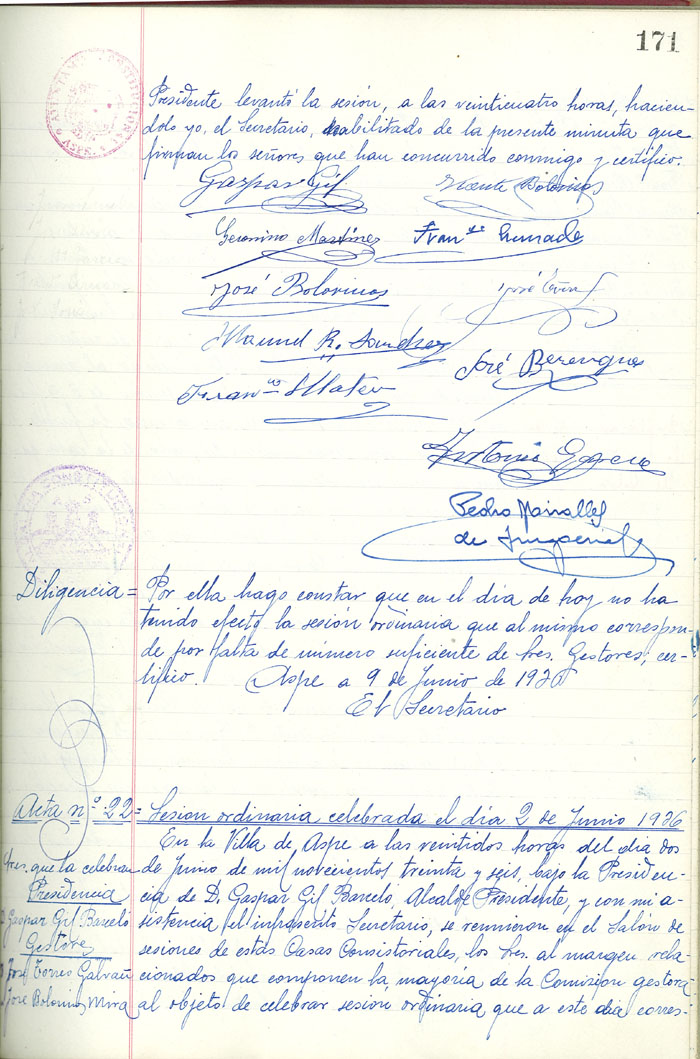 171
Presidente levantó la sesión, a las veinticuatro horas, hacien-
dolo yo, el Secretario, habilitado de la presente minuta que
firman los señores que han concurrido conmigo y certifico.
Gaspar Gil
Vicente Bolorinos
Geronimo Martínez
Franco
José Bolorinos
José
Manuel R. Sanchez
José Berenguer
Franco Mateo
Antonio
Pedro Mirallles
de Imperial
Diligencia = Por ella hago constar que en el día de hoy no ha
tenido efecto la sesión ordinaria que al mismo correspon-
de por falta de número suficiente de Sres. Gestores, cer-
tifico. Aspe a 9 de Junio de 1936
El Secretario
Acta nº 22 = Sesion ordinaria celebrada el día 2 de Junio 1936
En la Villa de Aspe a las veintidos horas del día dos
Sres. que la celebran
de Junio de mil novecientos treinta y seis, bajo la Presiden-
Presidencia
cia de D. Gaspar Gil Barceló, Alcalde Presidente, y con mi a-
D Gaspar Gil Barceló
sistencia el infrascrito Secretario, se reunieron en el Salón de
Gestore,
sesiones de estas Casas Consistoriales, los Sres. al margen rela-
José Torres Galvañ
cionados que componen la mayoría de la Comision gestora
José Bolorinos Mira
al objeto de celebrar sesión ordinaria que a este dia corres-